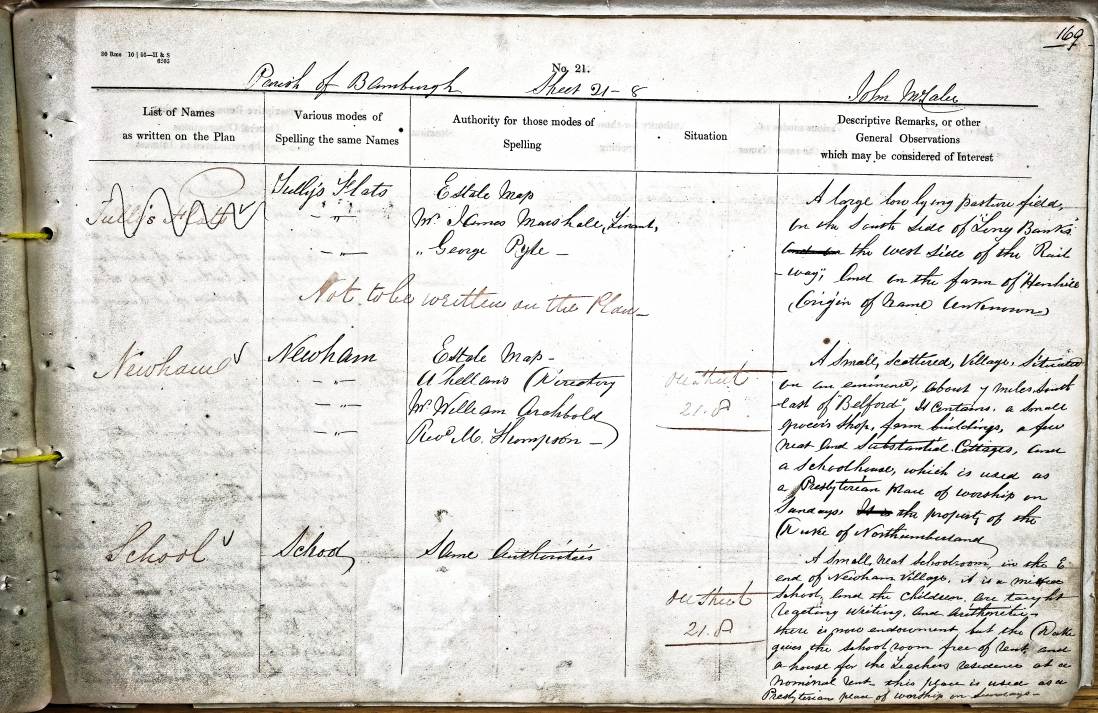 169
30 Rms 10 | 56—H & S
6505
No. 21.
Parish of Bamburgh Sheet 21-8 John McTalu
List of Names
as written on the Plan
Various modes of
Spelling the same Names
Authority for those modes of
Spelling
Situation
Descriptive Remarks, or other
General Observations
which may be considered of Interest
Tully's Flatt
Tully's Flats
- " -
- " -
Estate Map
Mr. James Marshall, Tenant,
" George Pyle -
A large low lying pasture field,
on the South side of "Ling Banks"
the west side of the Rail
-way," and on the farm of
(Origin of Name Unknown)
Not to be written on the Plan-
Newham
Newham
- " -
- " -
- " -
Estate Map-
Whellans Directory
Mr. William Archbold
Revd. M. Thompson -
on sheet
21.8
A Small, scattered, Village, Situated
on an eminence, about 7 miles South
-east of "Belford", It Contains, a small
grocers shop, farm buildings, a few
neat and Substantial Cottages, and
a Schoolhouse, which is used as
a Presbyterian place of worship on
Sundays, It is the property of the
Duke of Northumberland
School
School
Same Authorities
on sheet
21.8
A Small, neat schoolroom, in the E.
end of Newham Village, it is a mixed
School, and the children, are taught
regeting writing, and
there is now endowment, but the Duke
gives the school room free of rent, and
a house for the teachers residence at a
nominal rent- this place is used as a
Presbyterian place of worship on Sundays-